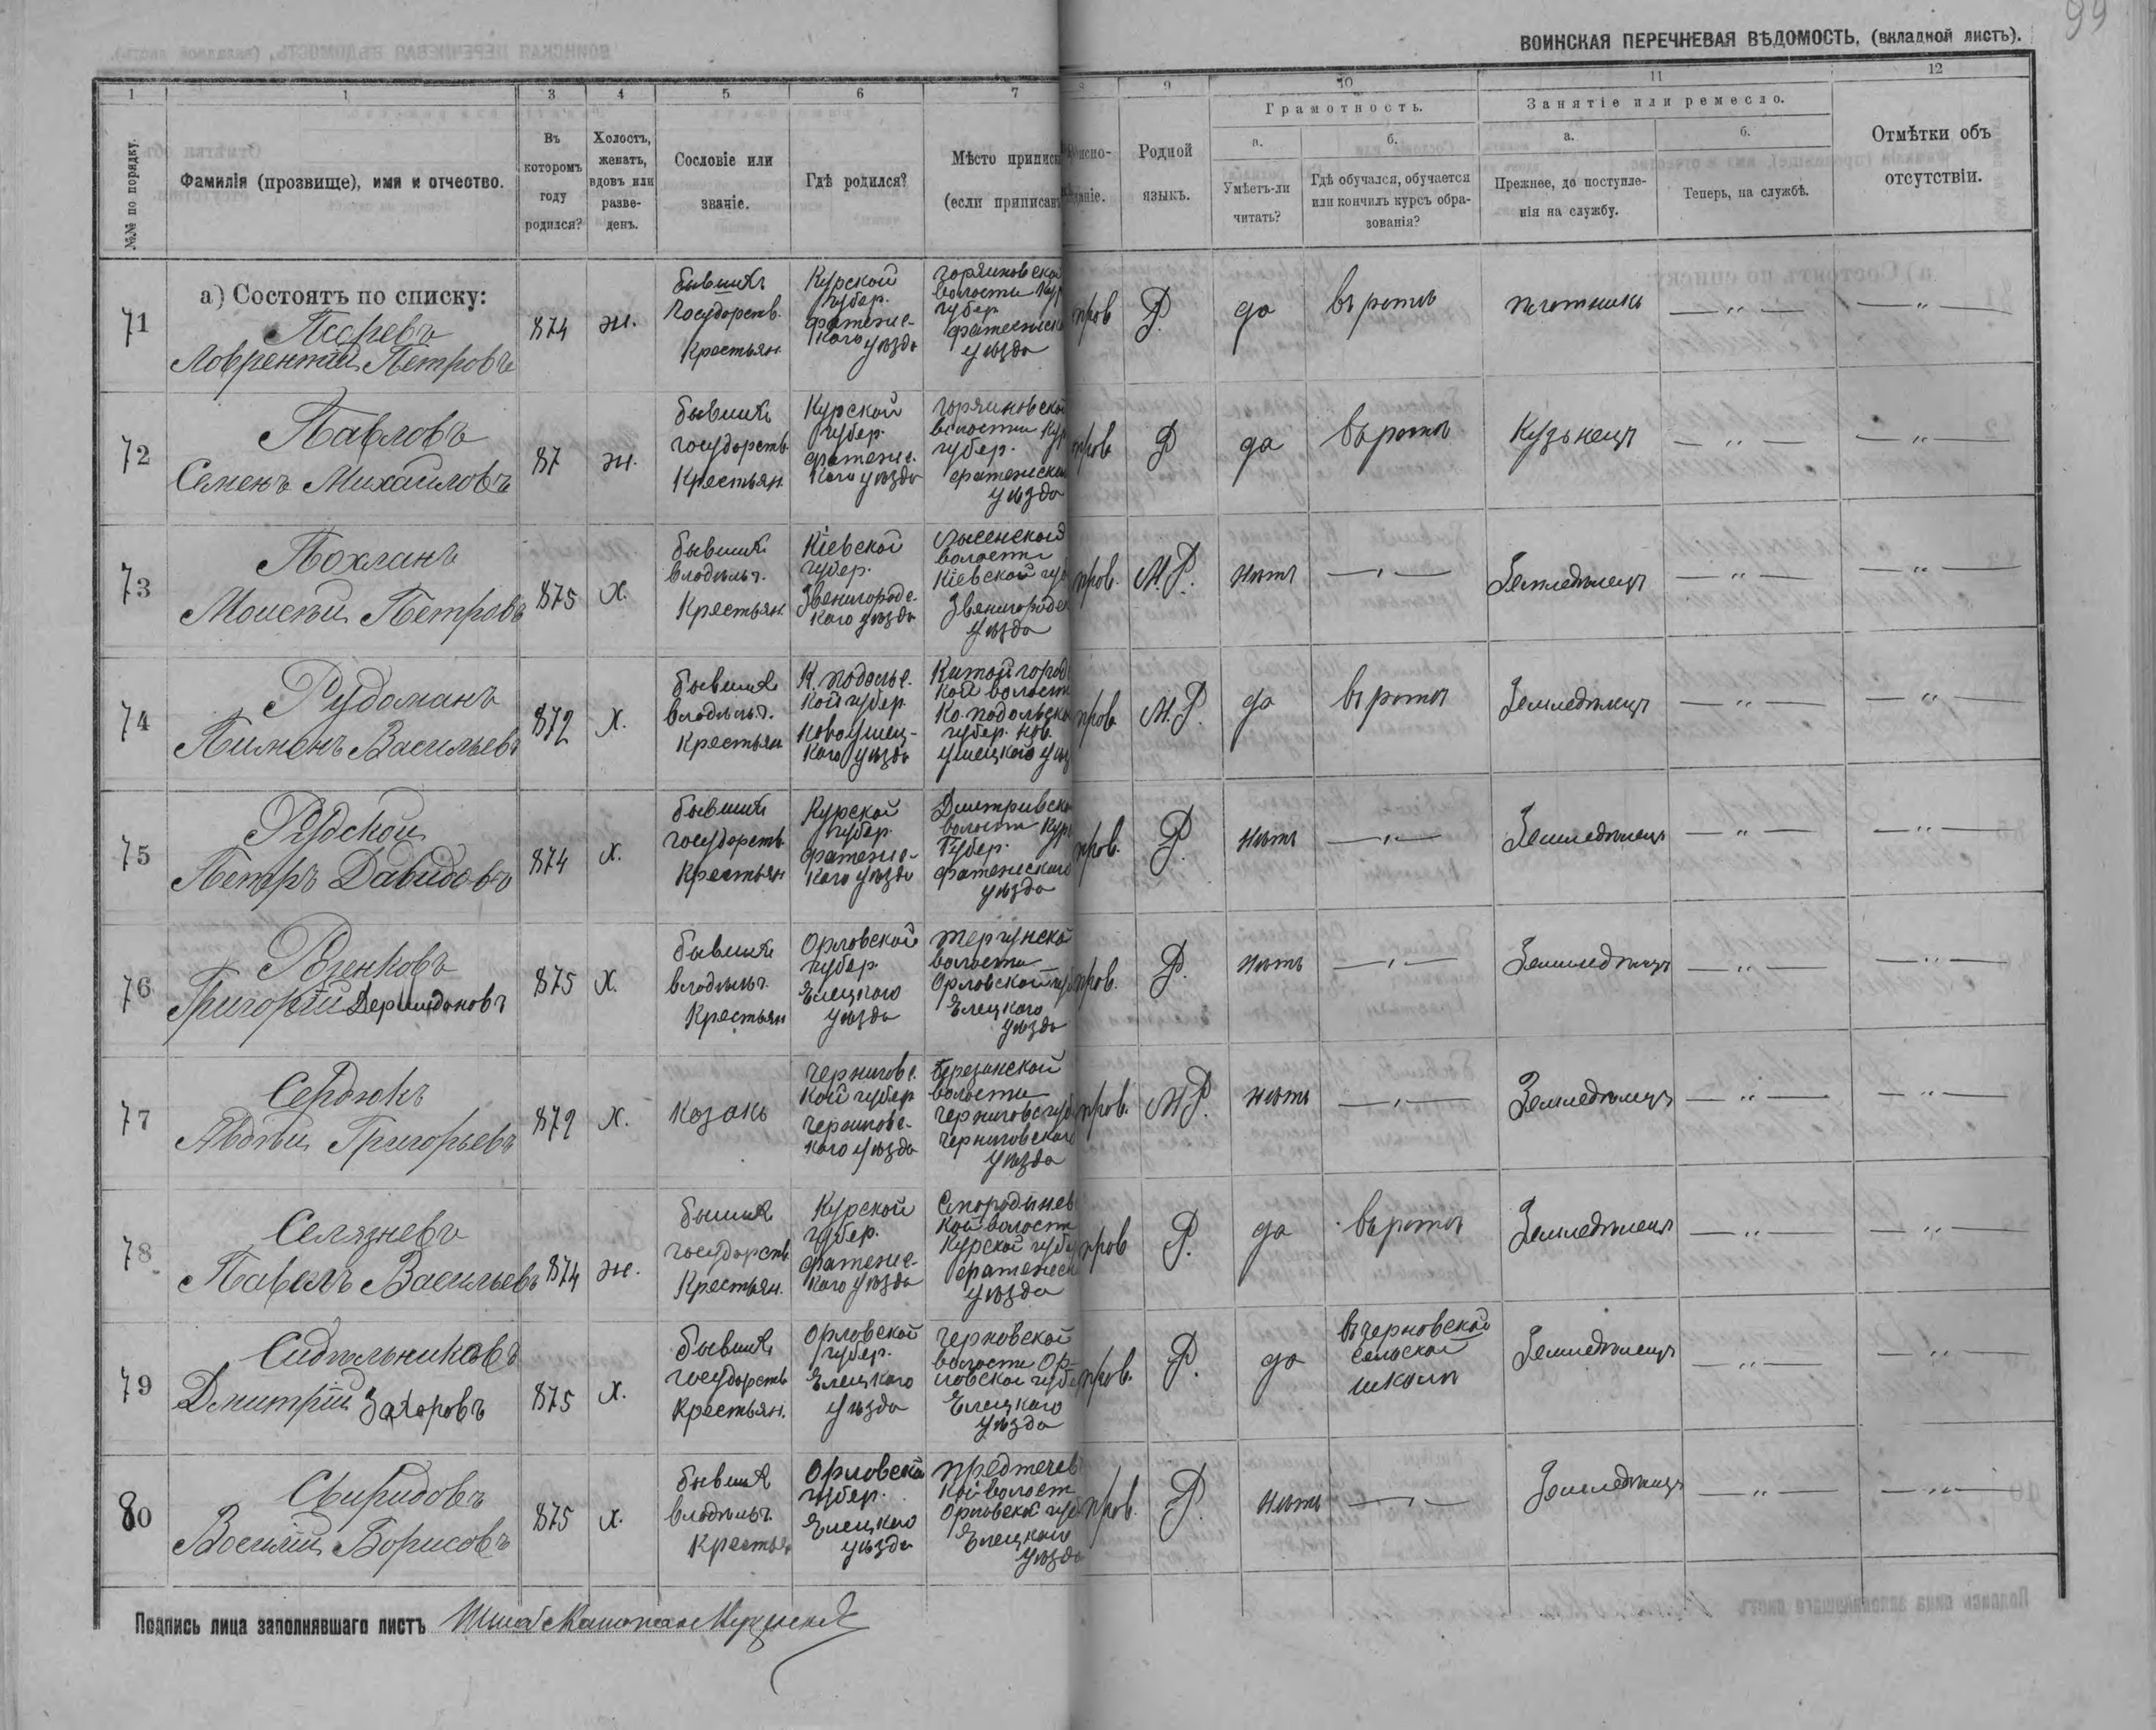 99
ВОИНСКАЯ ПЕРЕЧНЕВАЯ ВѢДОМОСТЬ, (вкладной листъ).
1 1 3 4 5 6 7 8 9 10 11 12
№№ по порядку.
Фамилія (прозвище), имя и отчество.
Въ которомъ году родился?
Холостъ, женатъ, вдовъ или разве-денъ.
Сословіе или званіе.
Гдѣ родился?
Мѣсто приписк
(если приписан
Родной языкъ.
Грамотность.
а.
Умѣетъ-ли читать?
б.
Гдѣ обучался, обучается или кончилъ курсъ обра-зованія?
Занятіе или ремесло.
а.
Прежнее, до поступле-нія на службу.
б.
Теперь, на службѣ.
Отмѣтки объ отсутствіи.
а) Состоятъ по списку:
71
Петровъ
874 ж.
Государств.
Крестьян
Курской
губер.
фатежс-
каго уѣзда
волости
губер
уѣзда
пров Р. да въ ротѣ плотникъ — „ — — „ —
72
Павловъ
Семенъ Михаиловъ
87 ж.
бывших
государств
Крестьян
Курской
губер.
фатежс-
каго уѣзда
волости Кур
губер.
уѣзда
пров Р да въ ротѣ Кузьнецъ — „ — — „ —
73
Похланъ
Моисѣй Петровъ
875 Х.
бывших
владѣльч.
Крестьян.
Кіевской
губер.
Звенигородс-
каго уѣзда
Лысенской
волости
Кіевской губ
Звенигородс
уѣзда
пров. М.Р. нѣтъ — „ — Земледѣлецъ — „ — — „ —
74
Рудоманъ
Пименъ Васильевъ
872 Х.
бывших
владѣльч.
Крестьян
К. подольс-
кой губер.
Новоушиц-
каго уѣзда
Китайгород
кой волости
Ка. подольско
губер. Нов.
ушецкого уѣз
пров. М.Р. да въ ротѣ Земледѣлецъ — „ — — „ —
75
Рудской
Петръ Давидовъ
874 Х.
бывших
государств
Крестьян
Курской
губер.
фатежс-
каго уѣзда
Дмитривско
волости Кур
Губер.
фатежскаго
уѣзда
пров. Р. нѣтъ — „ — Земледѣлецъ — „ — — „ —
76
Григорій
875 Х.
бывших
владѣльч.
Крестьян
Орловской
губер.
Елецкаго
уѣзда
волости
Орловской губ
Елецкаго
уѣзда
пров. Р. нѣтъ — „ — Земледѣлецъ — „ — — „ —
77
Сердюкъ
Авдѣй Григорьевъ
872 Х.
козакъ
Черниговс.
кой губер
Черниговс-
каго уѣзда
Березанской
волости
Черниговс губ
Черниговскаго
уѣзда
пров. М.Р. нѣтъ — „ — Земледѣлецъ — „ — — „ —
78
Селязневъ
Павелъ Васильевъ
874 ж.
государств
Крестьян.
Курской
губер.
фатежс-
каго уѣзда
Смородынев
кой волости
Курской губ
уѣзда
пров Р. да въ ротѣ Земледѣлецъ — „ — — „ —
79
Сидѣльниковъ
Дмитрій Захаровъ
875 Х.
бывших
государств
Крестьян.
Орловской
губер.
Елецкаго
уѣзда
Черновской
волости Ор-
ловской губе
Елецкаго
уѣзда
пров. Р. да въ черновской
сельской
школѣ
Земледѣлецъ — „ — — „ —
80
Свиридовъ
Василій Борисовъ
875 х.
бывших
владѣльч.
Крестья
Орловской
губер.
Елецкаго
уѣзда
Предтечев
кой волост
Орловской губ
Елецкаго
уѣзда
пров. Р. нѣтъ — „ — Земледѣлецъ — „ — — „ —
Подпись лица заполнявшаго листъ